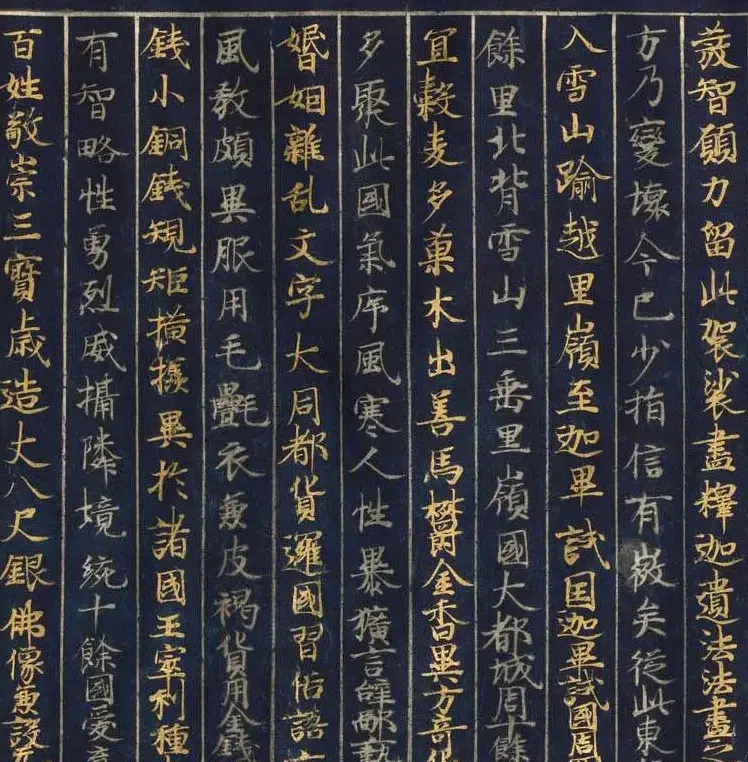 發智願力留此袈裟盡釋迦遺法法盡之
方乃變壞今已少損信有徵矣從此東
入雪山踰越里嶺至迦畢試国迦畢試國周
餘里北背雪山三垂里嶺國大都城周十餘
宜穀麦多菓木出善馬欝金香異方奇
多聚此國氣序風寒人性暴獷言辭鄙
婚姻雜乱文字大同都貨邏國習俗語
風教頗異服用毛㲲衣兼皮褐貨用金錢
錢小銅錢規矩摸樣異於諸國王窣利種
有智略性勇烈威攝隣境統十餘國愛
百姓敬崇三寶歳造丈八尺銀佛像兼設